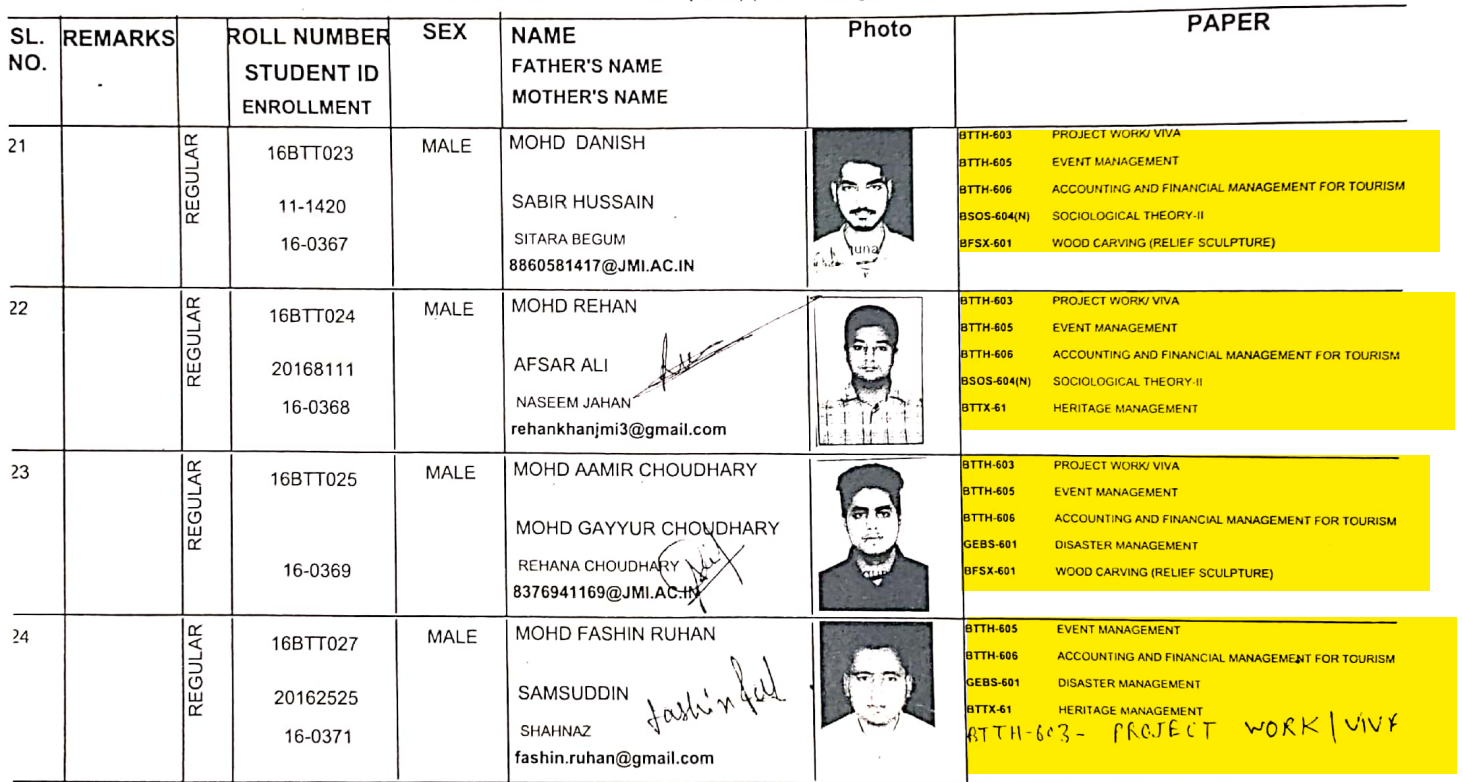 SL. NO. REMARKS ROLL NUMBER STUDENT ID ENROLLMENT SEX NAME FATHER'S NAME MOTHER'S NAME Photo PAPER
21 REGULAR 16BTT023 MALE MOHD DANISH
11-1420 SABIR HUSSAIN
16-0367 SITARA BEGUM
8860581417@JMI.AC.IN
BTTH-603 PROJECT WORK/ VIVA
BTTH-605 EVENT MANAGEMENT
BTTH-606 ACCOUNTING AND FINANCIAL MANAGEMENT FOR TOURISM
BSOS-604(N) SOCIOLOGICAL THEORY-II
BFSX-601 WOOD CARVING (RELIEF SCULPTURE)
22 REGULAR 16BTT024 MALE MOHD REHAN
20168111 AFSAR ALI
16-0368 NASEEM JAHAN
rehankhanjmi3@gmail.com
BTTH-603 PROJECT WORK/ VIVA
BTTH-605 EVENT MANAGEMENT
BTTH-606 ACCOUNTING AND FINANCIAL MANAGEMENT FOR TOURISM
BSOS-604(N) SOCIOLOGICAL THEORY-II
BTTX-61 HERITAGE MANAGEMENT
23 REGULAR 16BTT025 MALE MOHD AAMIR CHOUDHARY
MOHD GAYYUR CHOUDHARY
16-0369 REHANA CHOUDHARY
8376941169@JMI.AC.IN
BTTH-603 PROJECT WORK/ VIVA
BTTH-605 EVENT MANAGEMENT
BTTH-606 ACCOUNTING AND FINANCIAL MANAGEMENT FOR TOURISM
GEBS-601 DISASTER MANAGEMENT
BFSX-601 WOOD CARVING (RELIEF SCULPTURE)
24 REGULAR 16BTT027 MALE MOHD FASHIN RUHAN
20162525 SAMSUDDIN
16-0371 SHAHNAZ
fashin.ruhan@gmail.com
BTTH-605 EVENT MANAGEMENT
BTTH-606 ACCOUNTING AND FINANCIAL MANAGEMENT FOR TOURISM
GEBS-601 DISASTER MANAGEMENT
BTTX-61 HERITAGE MANAGEMENT
BTTH-603- PROJECT WORK/VIVA